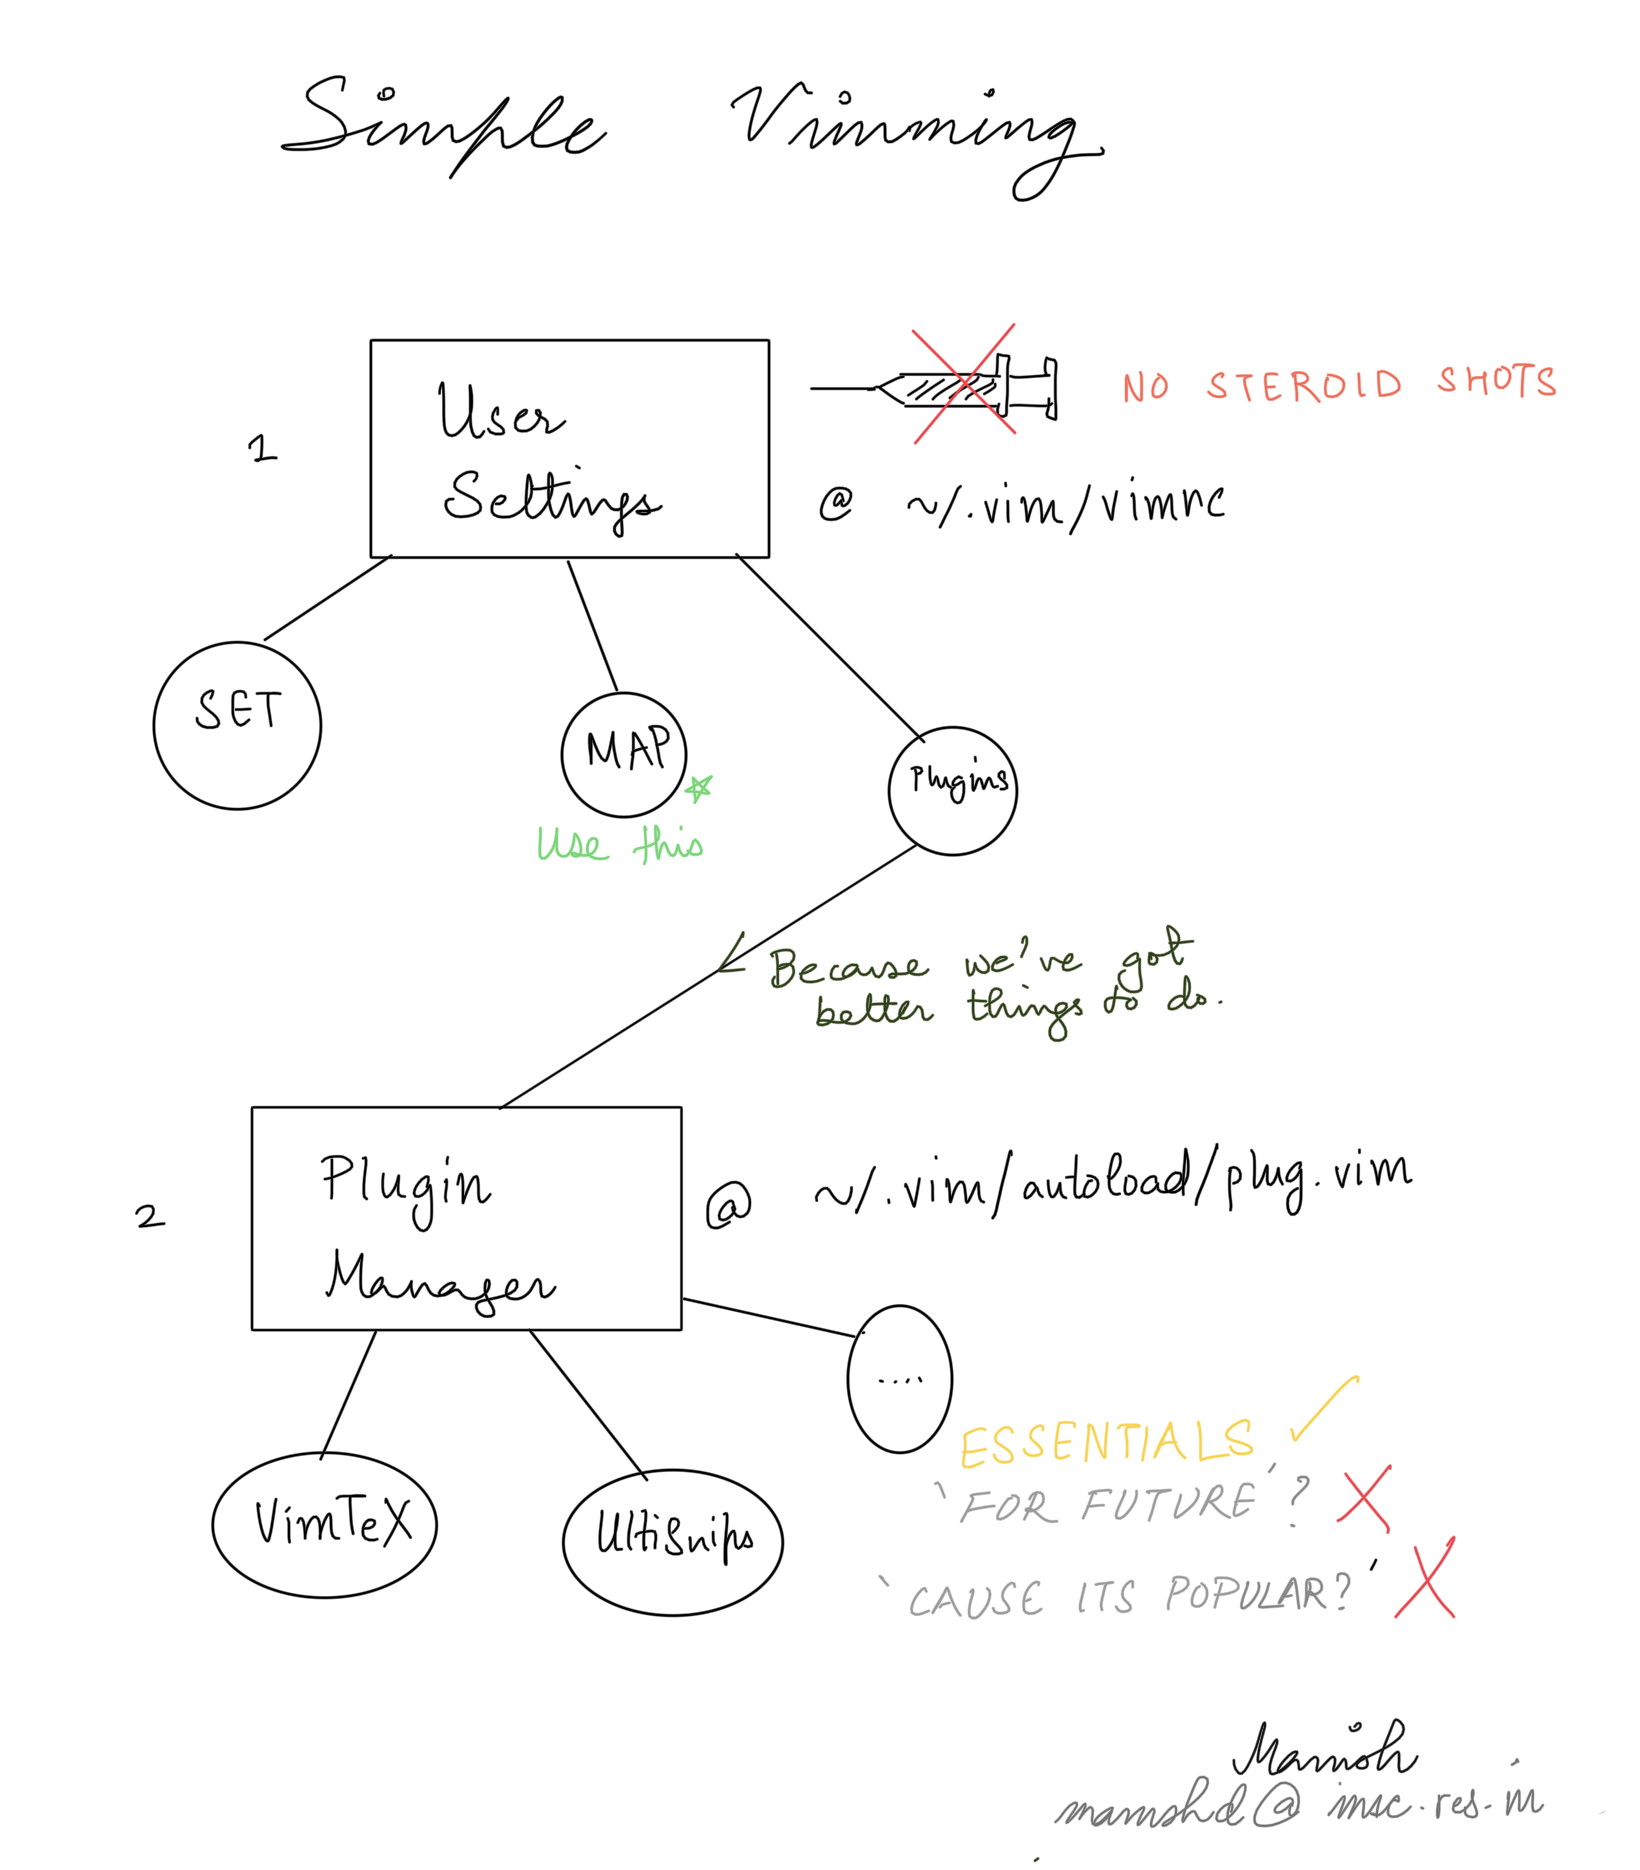 Simple Vimming
1
User
Settings
NO STEROID SHOTS
@ ~/.vim/vimrc
SET
MAP
Plugins
Use this
Because we've got
better things to do.
2
Plugin
Manager
@ ~/.vim/autoload/plug.vim
....
VimTeX
UltiSnips
ESSENTIALS ✓
`FOR FUTURE'? X
`CAUSE ITS POPULAR?' X
Manish
@imsc.res.in